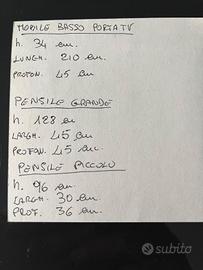 MOBILE BASSO PORTA TV
h. 34 cm.
LUNGH. 210 cm.
PROFON. 45 cm
PENSILE GRANDE
h. 128 cm
LARGH. 45 cm.
PROFON. 45 cm.
PENSILE PICCOLO
h. 96 cm.
LARGH. 30 cm.
PROF. 36 cm.
subito